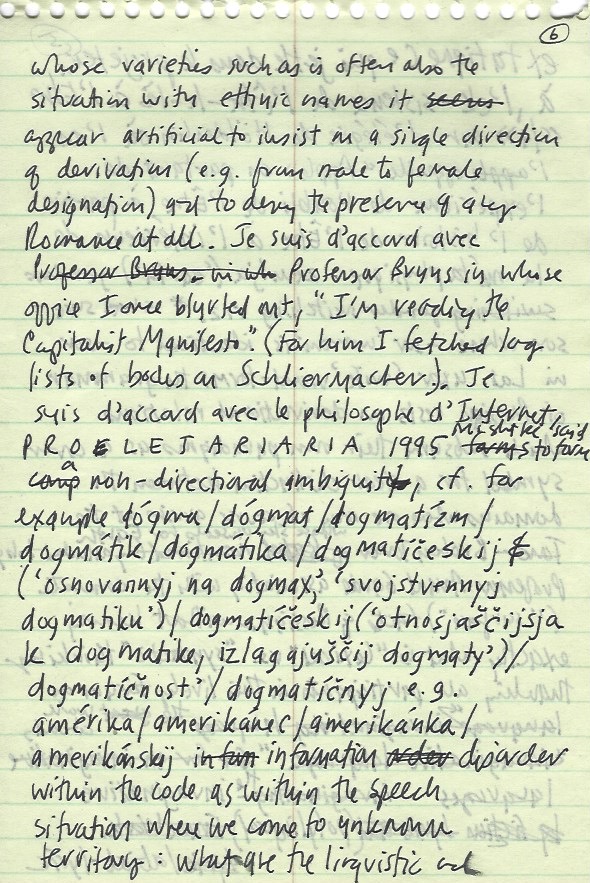 6
whose varieties such as is often also the
situation with ethnic names it seems
appear artificial to insist on a single direction
of derivation (e.g. from male to female
designation) and to deny the presence of any
Romance at all. Je suis d'accord avec
Professor Bryns, in wh Professor Bryns in whose
office I once blurted out, "I'm reading the
Capitalist Manifesto." (For him I fetched long
lists of books on Schliermacher). Je
suis d'accord avec le philosophe d'Internet
PROLETARIARIA 1995 Mishike said
forms to form
comp a non-directional ambiguity, cf. for
example dógma/dógmat/dogmatízm/
dogmátik/dogmátika/dogmatíčeskij
('osnovannyj na dogmax', 'svojstvennyj
dogmatiku')/dogmatíčeskij ('otnosjaščijsja
k dogmatike, izlagajuščij dogmaty')/
dogmatíčnost'/dogmatíčnyj e.g.
amérika/amerikánec/amerikánka/
amerikánskij in fun information order disorder
within the code as within the speech
situation where we come to unknown
territory: what are the linguistic and